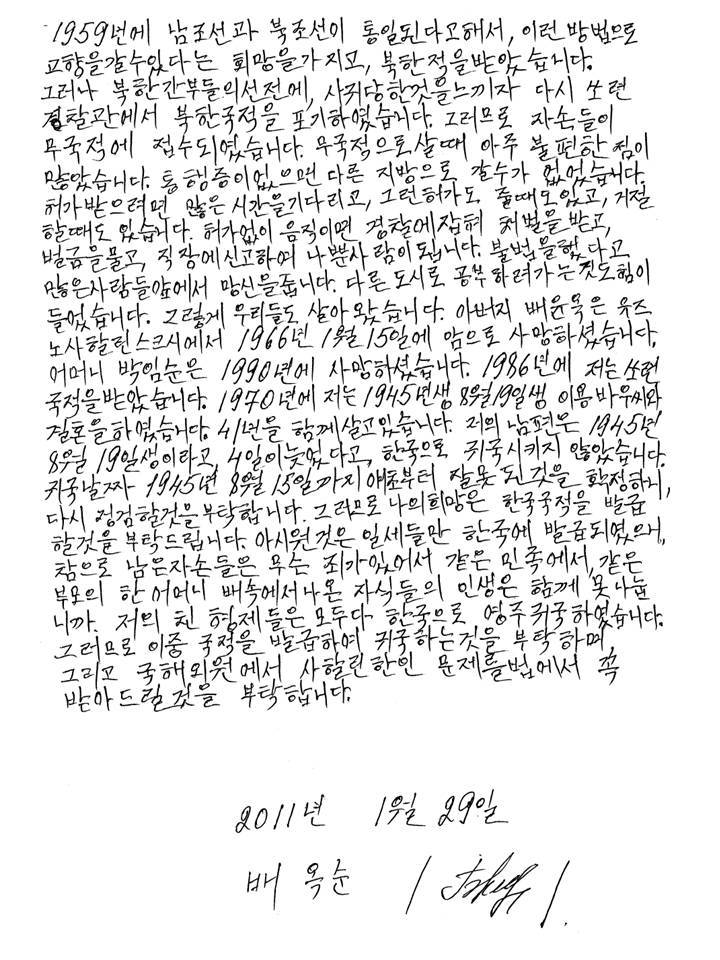 1959년에 남조선과 북조선이 통일된다고해서, 이런 방법으로
고향을갈수있다는 희망을가지고, 북한적을받았습니다.
그러나 북한간부들의선전에, 사귀당한것을느끼자 다시 쏘련
경찰관에서 북한국적을 포기하였습니다. 그러므로 자손들이
무국적에 접수되였습니다. 무국적으로살때 아주 불편한 점이
많았습니다. 통행증이없으면 다른 지방으로 갈수가 없었습니다.
허가받으려면 많은 시간을기다리고, 그런허가도 줄때도있고, 거절
할때도 있습니다. 허가없이 움직이면 경찰에잡혀 처벌을받고,
벌금을물고, 직장에신고하여 나쁜사람이됩니다. 불법을했다고
많은사람들앞에서 망신을줍니다. 다른 도시로 공부하려가는것도힘이
들었습니다. 그렇게 우리들도 살아왔습니다. 아버지 배윤옥은 유즈
노사할린스크시에서 1966년 1월 15일에 암으로 사망하셨습니다.
어머니 박임순은 1990년에 사망하셨습니다. 1986년에 저는 쏘련
국적을받았습니다. 1970년에 저는 1945년생 8월19일생 이용바우씨와
결혼을하였습니다. 41년을 함께살고있습니다. 저의 남편은 1945년
8월 19일생이라고, 4일이늦었다고, 한국으로 귀국시키지 않았습니다.
귀국날짜 1945년 8월 15일까지 애초부터 잘못된것을 확정하니,
다시 점검할것을부탁합니다. 그러므로 나의희망은 한국국적을 발급
할것을 부탁드립니다. 아시원것은 일세들만 한국에 발급되였으니,
참으로 남은자손들은 무슨 죄가있어서 같은 민족에서, 같은
부모의 한어머니 배속에서나온 자식들의 인생은 함께 못나눕
니까. 저의 친 형제들은 모두다 한국으로 영주귀국하였습니다.
그러므로 이중 국적을 발급하여 귀국하는것을 부탁하며,
그리고 국해의원에서 사할린한인 문제를법에서 꼭
받아드릴것을 부탁합니다.
2011년 1월 29일
배 옥순